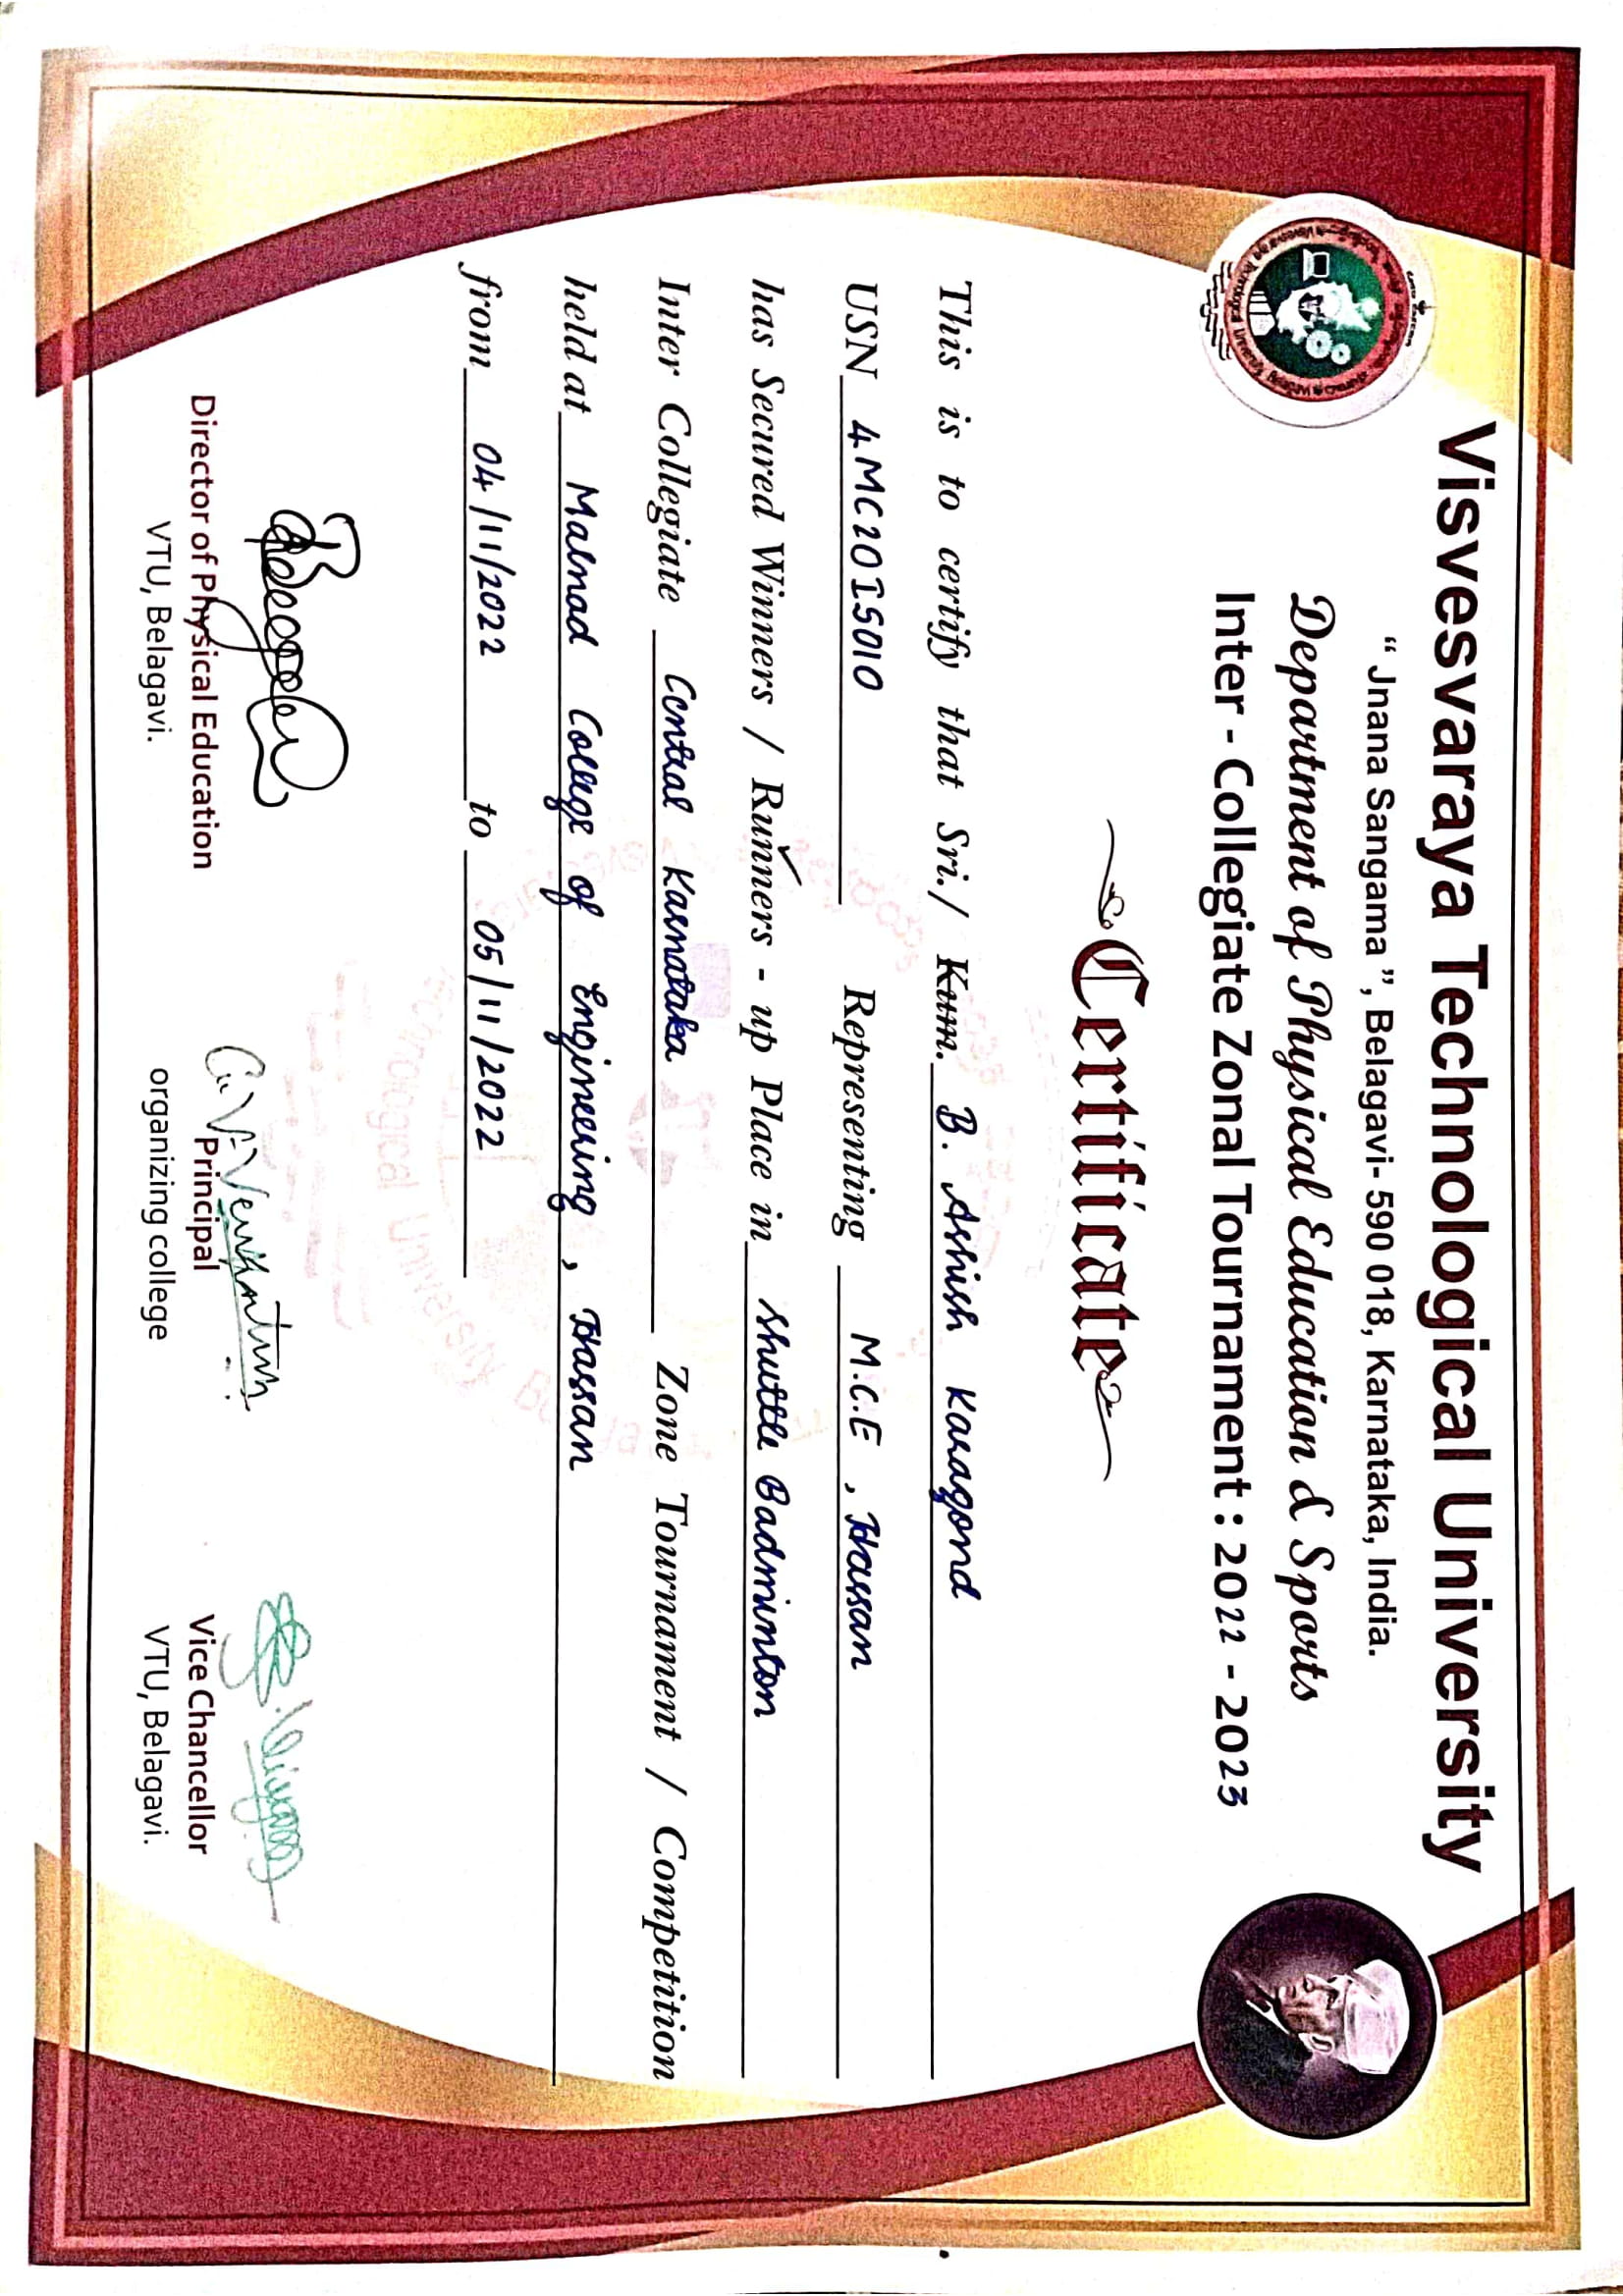 Visvesvaraya Technological University
“ Jnana Sangama ”, Belagavi- 590 018, Karnataka, India.
Department of Physical Education & Sports
Inter - Collegiate Zonal Tournament : 2022 - 2023
Certificate
This is to certify that Sri./ Kum. B. Ashish Karagond
USN 4MC20IS010 Representing M.C.E , Hassan
has Secured Winners / Runners - up Place in Shuttle Badminton
Inter Collegiate Central Karnataka Zone Tournament / Competition
held at Malnad College of Engineering , Hassan
from 04/11/2022 to 05/11/2022
Director of Physical Education
VTU, Belagavi.
Principal
organizing college
Vice Chancellor
VTU, Belagavi.